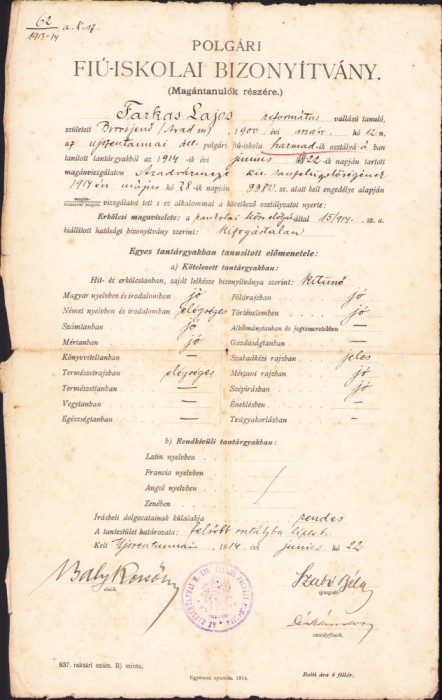 62
1913-14 a. k. sz.
POLGÁRI
FIÚ-ISKOLAI BIZONYÍTVÁNY.
(Magántanulók részére.)
Farkas Lajos református vallású tanuló,
született Borosjenő (Arad m) 1900. évi márc. hó 12-n
az ujszentannai áll. polgári fiú-iskola harmad-ik osztályá ban
tanított tantárgyakból az 1914-ik évi junius 22-ik napján tartott
magánvizsgálaton Aradvármegye kir. tanfelügyelőségének
1914 évi május hó 28-ik napján 3380. sz. alatt kelt engedélye alapján
vizsgálatot tett s ez alkalommal a következő osztályzatot nyerte:
Erkölcsi magaviselete: a pankotai által 15/914. sz. a.
kiállított hatósági bizonyítvány szerint: kifogástalan
Egyes tantárgyakban tanusított előmenetele:
a) Kötelezett tantárgyakban:
Hit- és erkölcstanban, saját lelkésze bizonyítványa szerint: kitünő
Magyar nyelvben és irodalomban jó Földrajzban jó
Német nyelvben és irodalomban elégséges Történelemben jó
Számtanban jó Alkotmánytanban és jogismeretekben —
Mértanban jó Gazdaságtanban —
Könyviteltanban — Szabadkézi rajzban jeles
Természetrajzban elégséges Mértani rajzban jó
Természettanban — Szépírásban jó
Vegytanban — Éneklésben —
Egészségtanban — Testgyakorlásban —
b) Rendkívüli tantárgyakban:
Latin nyelvben
Francia nyelvben
Angol nyelvben
Zenében
Írásbeli dolgozatainak külalakja rendes
A tantestület határozata: felsőbb osztályba léphet.
Kelt Ujszentanna, 1914 évi junius hó 22
Szabó Béla
elnök. igazgató.
osztályfőnök.
837. raktári szám. B) minta.
Egyetemi nyomda. 1914.
Bolti ára 4 fillér.